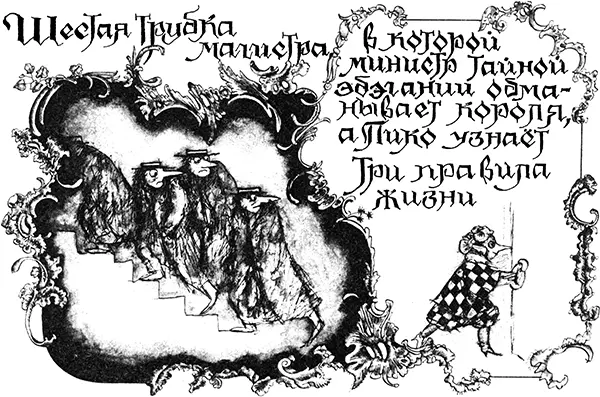 Шестая трубка
магистра,
в которой
министр Тайной
обма-
нывает короля,
а Пико узнаёт
Три правила
жизни